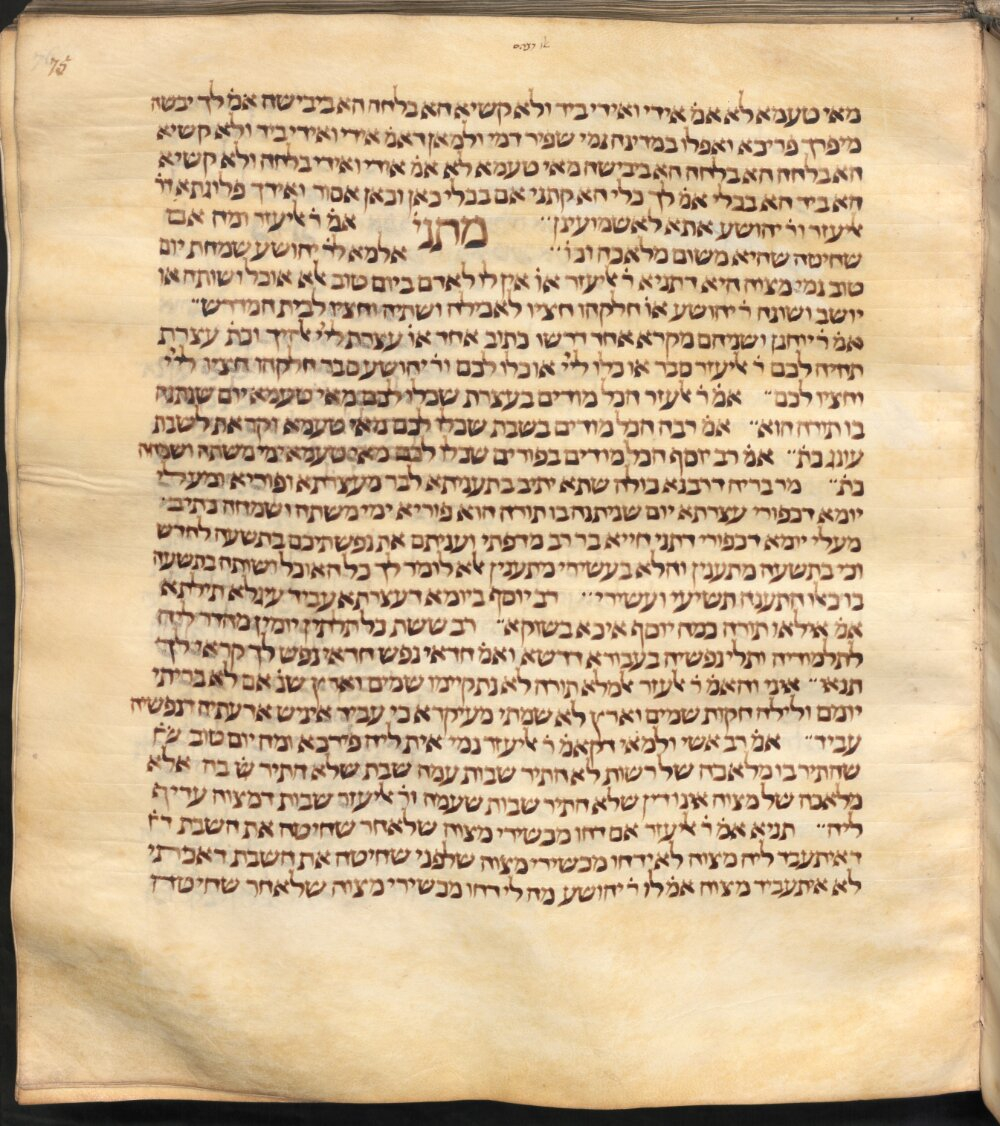 75
מאי טעמא לא אמ׳ אידי ואידי ביד ולא קשיא הא בלחה הא ביבישה אמ׳ לך יבשה
מיפרך פריכא ואפלו במדינה נמי שפיר דמי ולמאן דאמ׳ אידי ואידי ביד ולא קשיא
הא בלחה הא בלחה הא ביבישה מאי טעמא לא אמ׳ אידי ואידי בלחה ולא קשיא
הא ביד הא בכלי אמ׳ לך כלי הא קתני אם בכלי כאן וכאן אסור ואידך פלוגתא דר׳
אליעזר ור׳ יהושע אתא לאשמועינן מתני׳ אמ׳ ר׳ אליעזר ומה אם
שחיטה שהיא משום מלאכה וכו׳ אלמא לר׳ יהושע שמחת יום
טוב נמי מצוה היא דתניא ר׳ אליעזר או׳ אין לו לאדם ביום טוב אלא אוכל ושותה או
יושב ושונה ר׳ יהושע או׳ חלקהו חציו לאכילה ושתיה וחציו לבית המדרש
אמ׳ ר׳ יוחנן ושניהם מקרא אחד דרשו כתוב אחד או׳ עצרת ליי׳ אלהיך וכת׳ עצרת
תהיה לכם ר׳ אליעזר סבר או כלו ליי׳ או כלו לכם ור׳ יהושע סבר חלקהו חציו ליי׳
וחציו לכם אמ׳ ר׳ אלעזר הכל מודים בעצרת שכלו לכם מאי טעמא יום שנתנה
בו תורה הוא אמ׳ רבה הכל מודים בשבת שכלו לכם מאי טעמא וקראת לשבת
עונג כת׳ אמ׳ רב יוסף הכל מודים בפורים שכלו לכם מאי טעמא ימי משתה ושמחה
כת׳ מר בריה דרבנא כולה שתא יתיב בתעניתא לבר מעצרתא ופוריא ומעלי
יומא דכפורי עצרתא יום שניתנה בו תורה הוא פוריא ימי משתה ושמחה כתיב
מעלי יומא דכפורי דתני חייא בר רב מדפתי ועניתם את נפשתיכם בתשעה לחדש
וכי בתשעה מתענין והלא בעשירי מתענין אלא לומר לך כל האוכל ושותה בתשעה
בו כאלו התענה תשיעי ועשירי רב יוסף ביומא דעצרתא עביד עיגלא תילתא
אמ׳ אילאו תורה כמה יוסף איכא בשוקא רב ששת כל תלתין יומין מהדר ליה
לתלמודיה ותלי נפשיה בעבורא דדשא ואמ׳ חדאי נפש חדאי נפש לך קראי לך
תנאי איני והאמ׳ ר׳ אלעזר אלמלא תורה לא נתקיימו שמים וארץ שנ׳ אם לא בריתי
יומם ולילה חקות שמים וארץ לא שמתי מעיקרא כי עביד איניש ארעתיה דנפשיה
עביד אמ׳ רב אשי ולמאי דקאמ׳ ר׳ אליעזר נמי אית ליה פירכא ומה יום טוב
שהתיר בו מלאכה של רשות לא התיר שבות עמה שבת שלא התיר בה אלא
מלאכה של מצוה אינו דין שלא התיר שבות שעמה ור׳ אליעזר שבות דמצוה עדיף
ליה תניא אמ׳ ר׳ אליעזר אם דחו מכשירי מצוה שלאחר שחיטה את השבת
דאיתעבד ליה מצוה לא ידחו מכשירי מצוה שלפני שחיטה את השבת דאכתי
לא איתעביד מצוה אמ׳ לו ר׳ יהושע מה לי דחו מכשירי מצוה שלאחר שחיטה